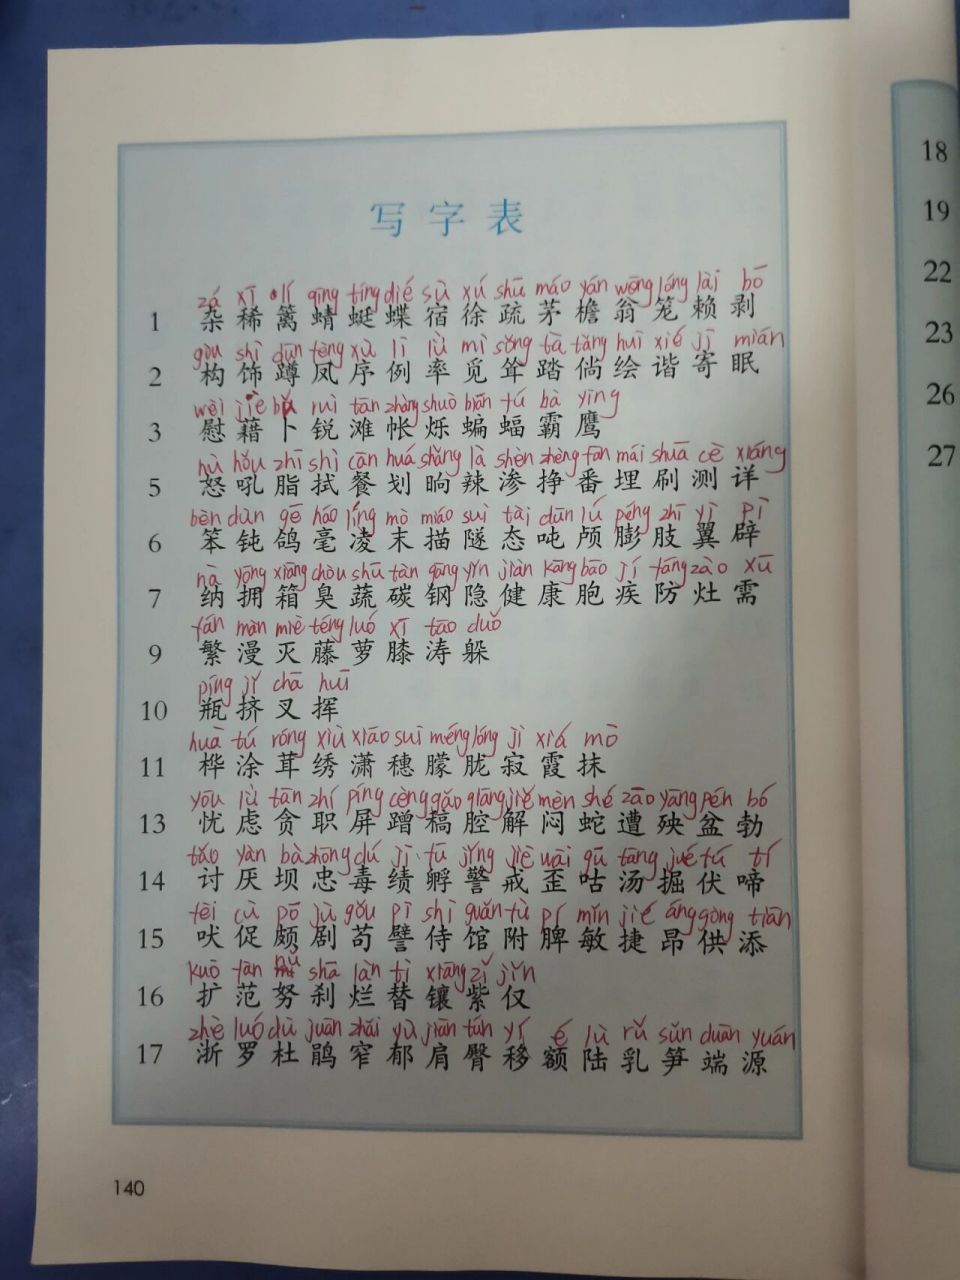 写字表
zá xī lí qīng tíng dié sù xú shū máo yán wēng lóng lài bō
1 杂稀篱蜻蜓蝶宿徐疏茅檐翁笼赖剥
gòu shì dūn fèng xù lì lǜ mì sǒng tà tǎng huì xié jì mián
2 构饰蹲凤序例率觅耸踏倘绘谐寄眠
wèi jiè bǔ ruì tān zhàng shuò biān fú bà yīng
3 慰藉卜锐滩帐烁蝙蝠霸鹰
nù hǒu zhī shì cān huá shǎng là shèn zhēng fān mái shuā cè xiáng
5 怒吼脂拭餐划晌辣渗挣番埋刷测详
bèn dùn gē háo líng mò miáo suì tài dūn lú péng zhī yì pì
6 笨钝鸽毫凌末描隧态吨颅膨肢翼辟
nà yōng xiāng chòu shū tàn gāng yǐn jiàn kāng bāo jí fáng zào xū
7 纳拥箱臭蔬碳钢隐健康胞疾防灶需
fán màn miè téng luó xī tāo duǒ
9 繁漫灭藤萝膝涛躲
píng jǐ chā huī
10 瓶挤叉挥
huà tú róng xiù xiāo suì méng lóng jì xiá mò
11 桦涂茸绣潇穗朦胧寂霞抹
yōu lǜ tān zhí píng cèng gǎo qiāng jiě mèn shé zāo yāng pén bó
13 忧虑贪职屏蹭稿腔解闷蛇遭殃盆勃
tǎo yàn bà zhōng dú jì fū jǐng jiè wāi gū tāng jué fú tí
14 讨厌坝忠毒绩孵警戒歪咕汤掘伏啼
fèi cù pō jù gǒu pì shì guǎn fù pí mǐn jié áng gòng tiān
15 吠促颇剧苟譬侍馆附脾敏捷昂供添
kuò fàn nǔ shā làn tì xiāng zǐ jǐn
16 扩范努刹烂替镶紫仅
zhè luó dù juān zhǎi yù jiān tún yí é lù rǔ sǔn duān yuán
17 浙罗杜鹃窄郁肩臀移额陆乳笋端源
140
18
19
22
23
26
27